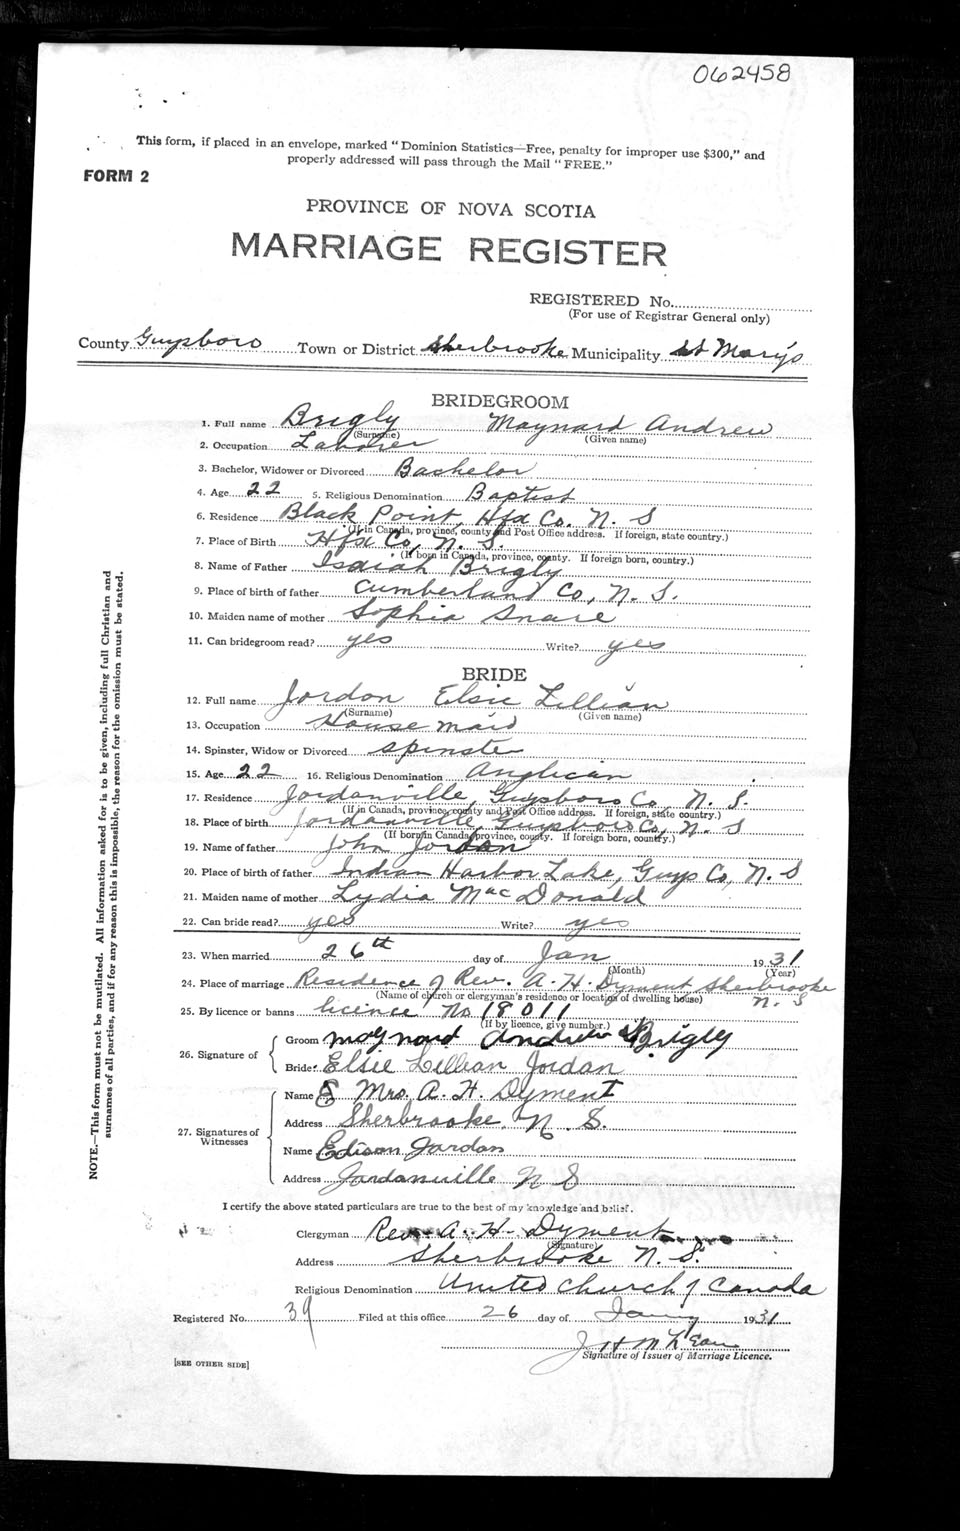 062458
This form, if placed in an envelope, marked "Dominion Statistics—Free, penalty for improper use $300," and
properly addressed will pass through the Mail "FREE."
FORM 2
PROVINCE OF NOVA SCOTIA
MARRIAGE REGISTER
REGISTERED No.
(For use of Registrar General only)
County Guysboro Town or District Sherbrooke Municipality St Mary's
BRIDEGROOM
1. Full name Brigly Maynard Andrew
(Surname) (Given name)
2. Occupation Laborer
3. Bachelor, Widower or Divorced Bachelor
4. Age 22 5. Religious Denomination Baptist
6. Residence Black Point, Hfx Co. N. S
(If in Canada, province, county and Post Office address. If foreign, state country.)
7. Place of Birth Hfx Co, N. S.
(If born in Canada, province, county. If foreign born, country.)
8. Name of Father Isaiah Brigly
9. Place of birth of father Cumberland Co, N. S.
10. Maiden name of mother Sophia Snare
11. Can bridegroom read? yes Write? yes
BRIDE
12. Full name Jordon Elsie Lillian
(Surname) (Given name)
13. Occupation House maid
14. Spinster, Widow or Divorced spinster
15. Age 22 16. Religious Denomination Anglican
17. Residence Jordanville, Guysboro Co, N. S.
(If in Canada, province, county and Post Office address. If foreign, state country.)
18. Place of birth Jordanville, Guysboro Co, N. S
(If born in Canada, province, county. If foreign born, country.)
19. Name of father John Jordan
20. Place of birth of father Indian Harbor Lake, Guys Co, N. S
21. Maiden name of mother Lydia MacDonald
22. Can bride read? yes Write? yes
23. When married 26th day of Jan 1931
(Month) (Year)
24. Place of marriage Residence of Rev. A. H. Dyment Sherbrooke
(Name of church or clergyman's residence or location of dwelling house) N. S
25. By licence or banns licence No 18011
(If by licence, give number.)
26. Signature of
Groom Maynard Andrew Brigly
Bride Elsie Lillian Jordan
27. Signatures of Witnesses
Name Mrs. A. H. Dyment
Address Sherbrooke, N. S.
Name Edison Jordan
Address Jordanville N S
I certify the above stated particulars are true to the best of my knowledge and belief.
Clergyman Rev. A. H. Dyment
(Signature)
Address Sherbrooke N. S.
Religious Denomination United Church of Canada
Registered No. 39 Filed at this office 26 day of Jany 1931
J H McLean
Signature of Issuer of Marriage Licence.
[SEE OTHER SIDE]
NOTE.—This form must not be mutilated. All information asked for is to be given, including full Christian and
surnames of all parties, and if for any reason this is impossible, the reason for the omission must be stated.